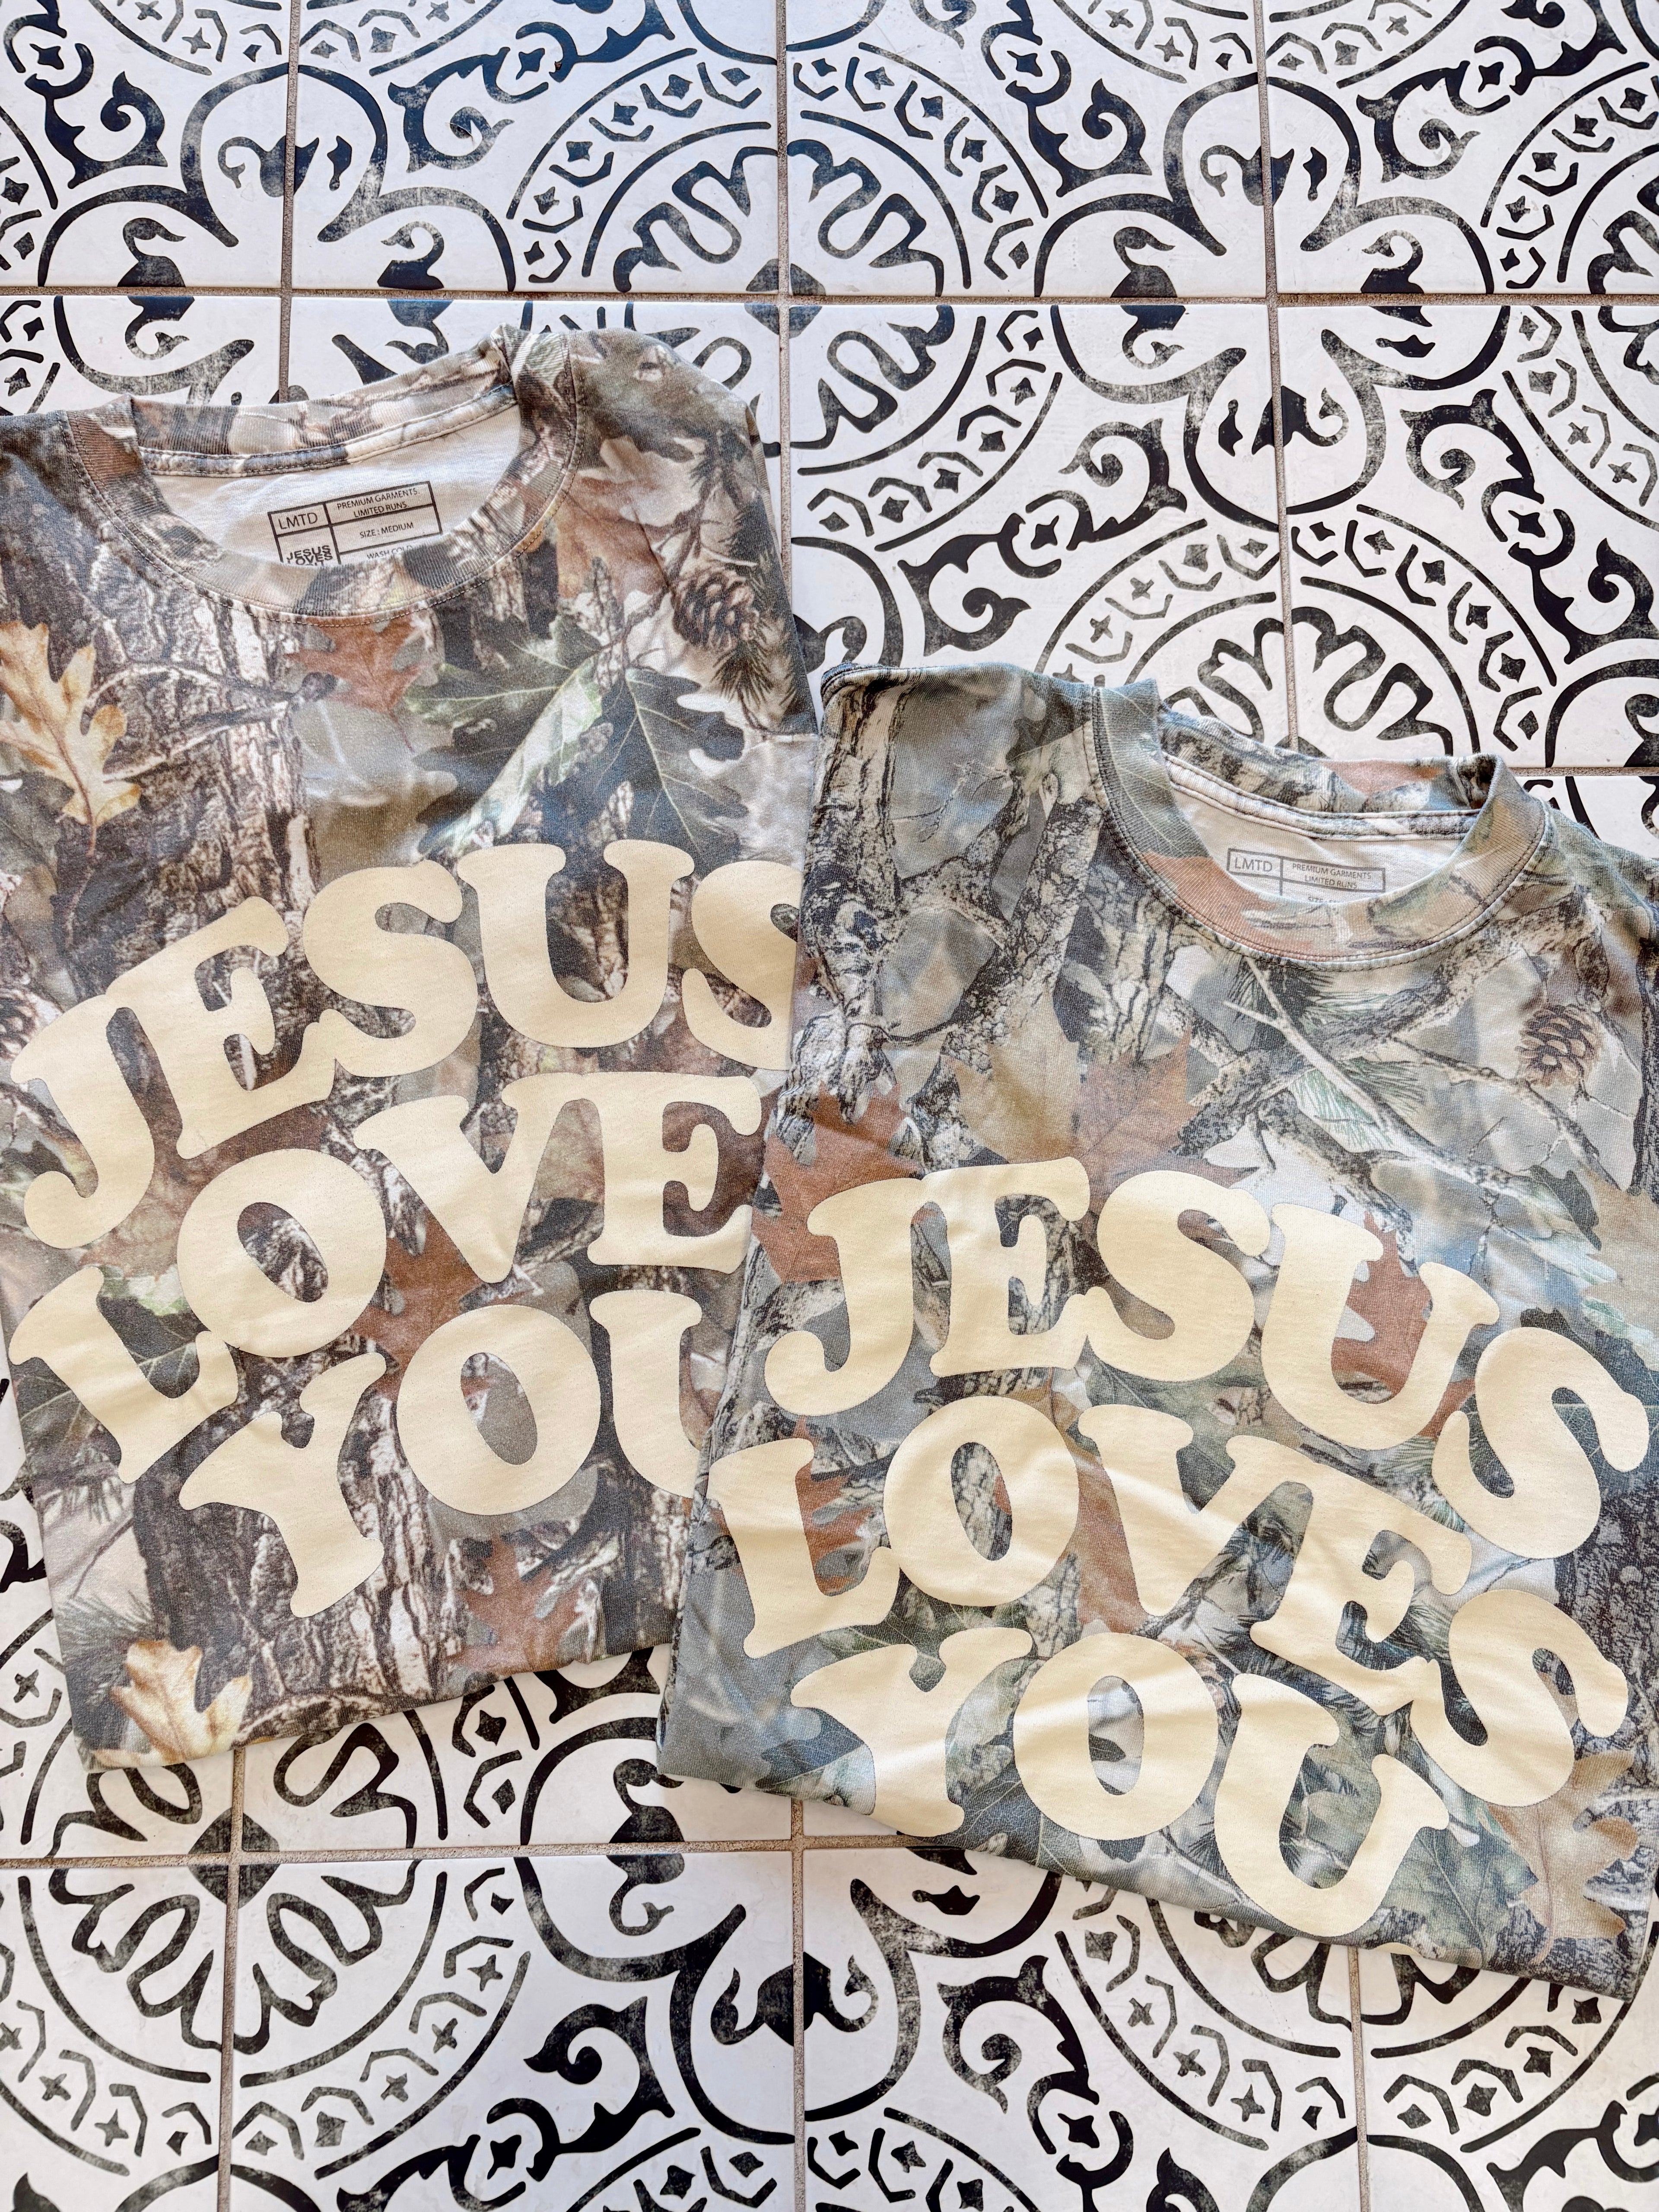 LMTD
PREMIUM GARMENTS.
LIMITED RUNS.
SIZE : MEDIUM
JESUS
LOVES
WASH COLD
JESUS
LOVE
YOU
LMTD
PREMIUM GARMENTS.
LIMITED RUNS
JESUS
LOVES
YOU